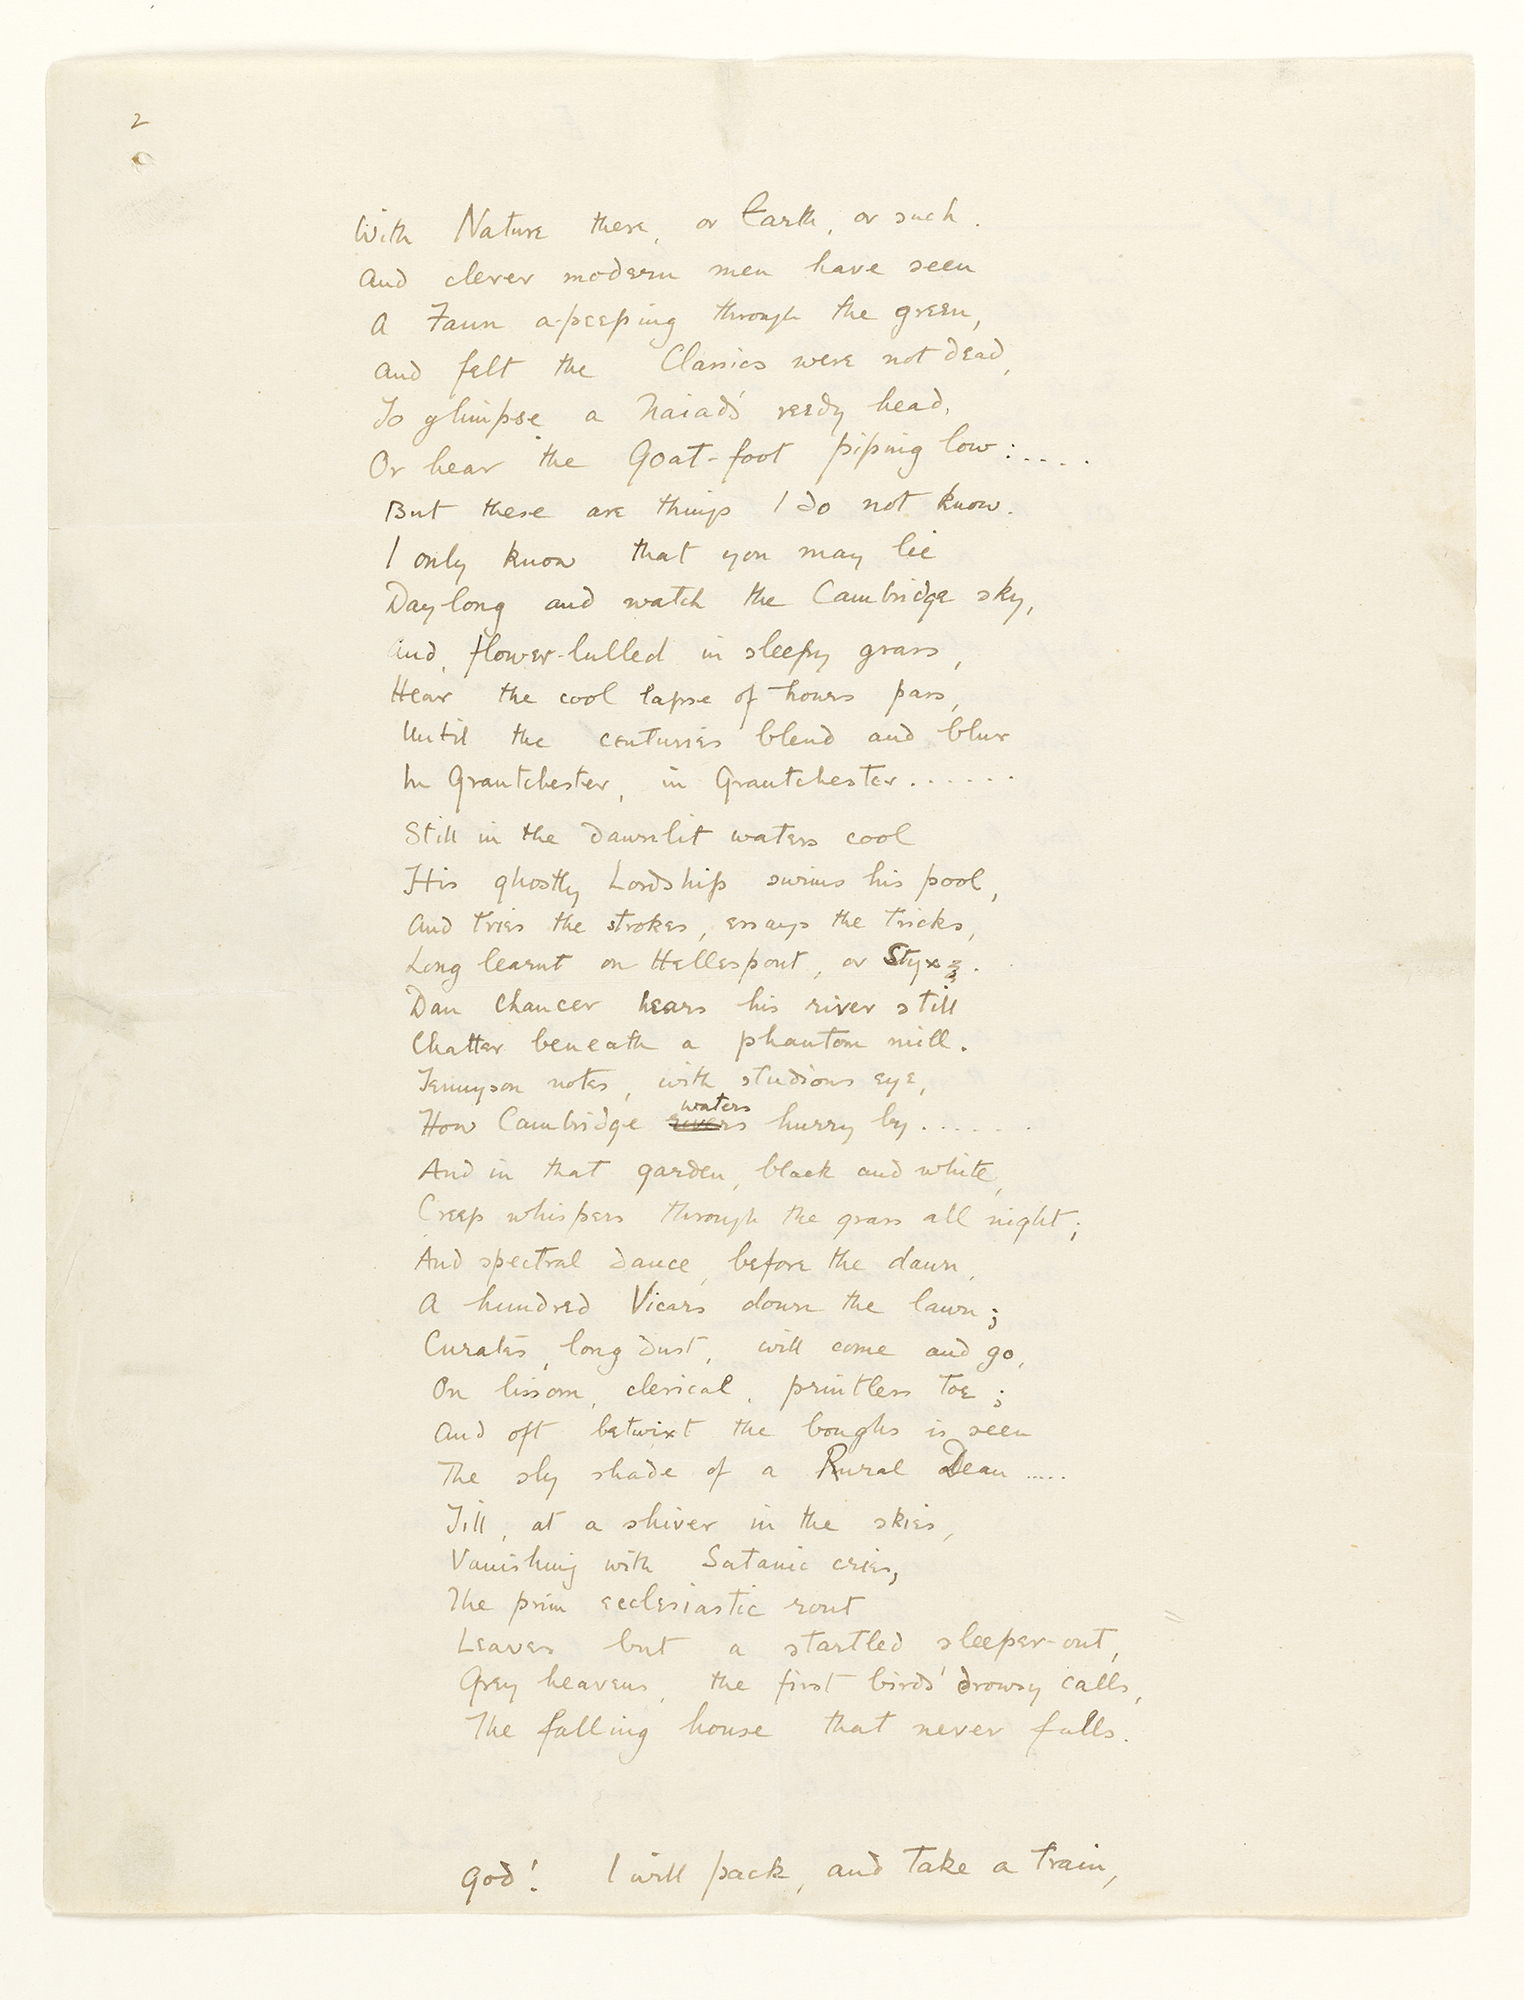 2
With Nature there, or Earth, or such.
And clever modern men have seen
A Faun a-peeping through the green,
And felt the Classics were not dead,
To glimpse a Naiad's reedy head,
Or hear the Goat-foot piping low:....
But these are things I do not know.
I only know that you may lie
Day long and watch the Cambridge sky,
And, flower-lulled in sleepy grass,
Hear the cool lapse of hours pass,
Until the centuries blend and blur
In Grantchester, in Grantchester......
Still in the dawnlit waters cool
His ghostly Lordship swims his pool,
And tries the strokes, essays the tricks,
Long learnt on Hellespont, or Styx.
Dan Chaucer hears his river still
Chatter beneath a phantom mill.
Tennyson notes, with studious eye,
waters
How Cambridge rivers hurry by......
And in that garden, black and white,
Creep whispers through the grass all night;
And spectral dance, before the dawn,
A hundred Vicars down the lawn;
Curates, long dust, will come and go,
On lissom, clerical, printless toe;
And oft betwixt the boughs is seen
The sly shade of a Rural Dean.....
Till, at a shiver in the skies,
Vanishing with Satanic cries,
The prim ecclesiastic rout
Leaves but a startled sleeper-out,
Grey heavens, the first birds' drowsy calls,
The falling house that never falls.
God! I will pack, and take a train,